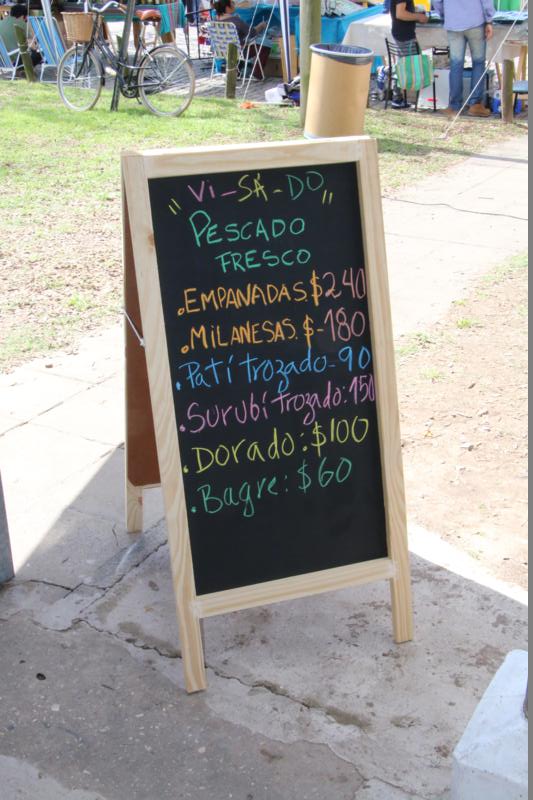 "VI-SA-DO"
PESCADO
FRESCO
.EMPANADAS.$240
.MILANESAS.$-180
.Patí trozado-90
.Surubí trozado:150
.Dorado:$100
.Bagre:$60